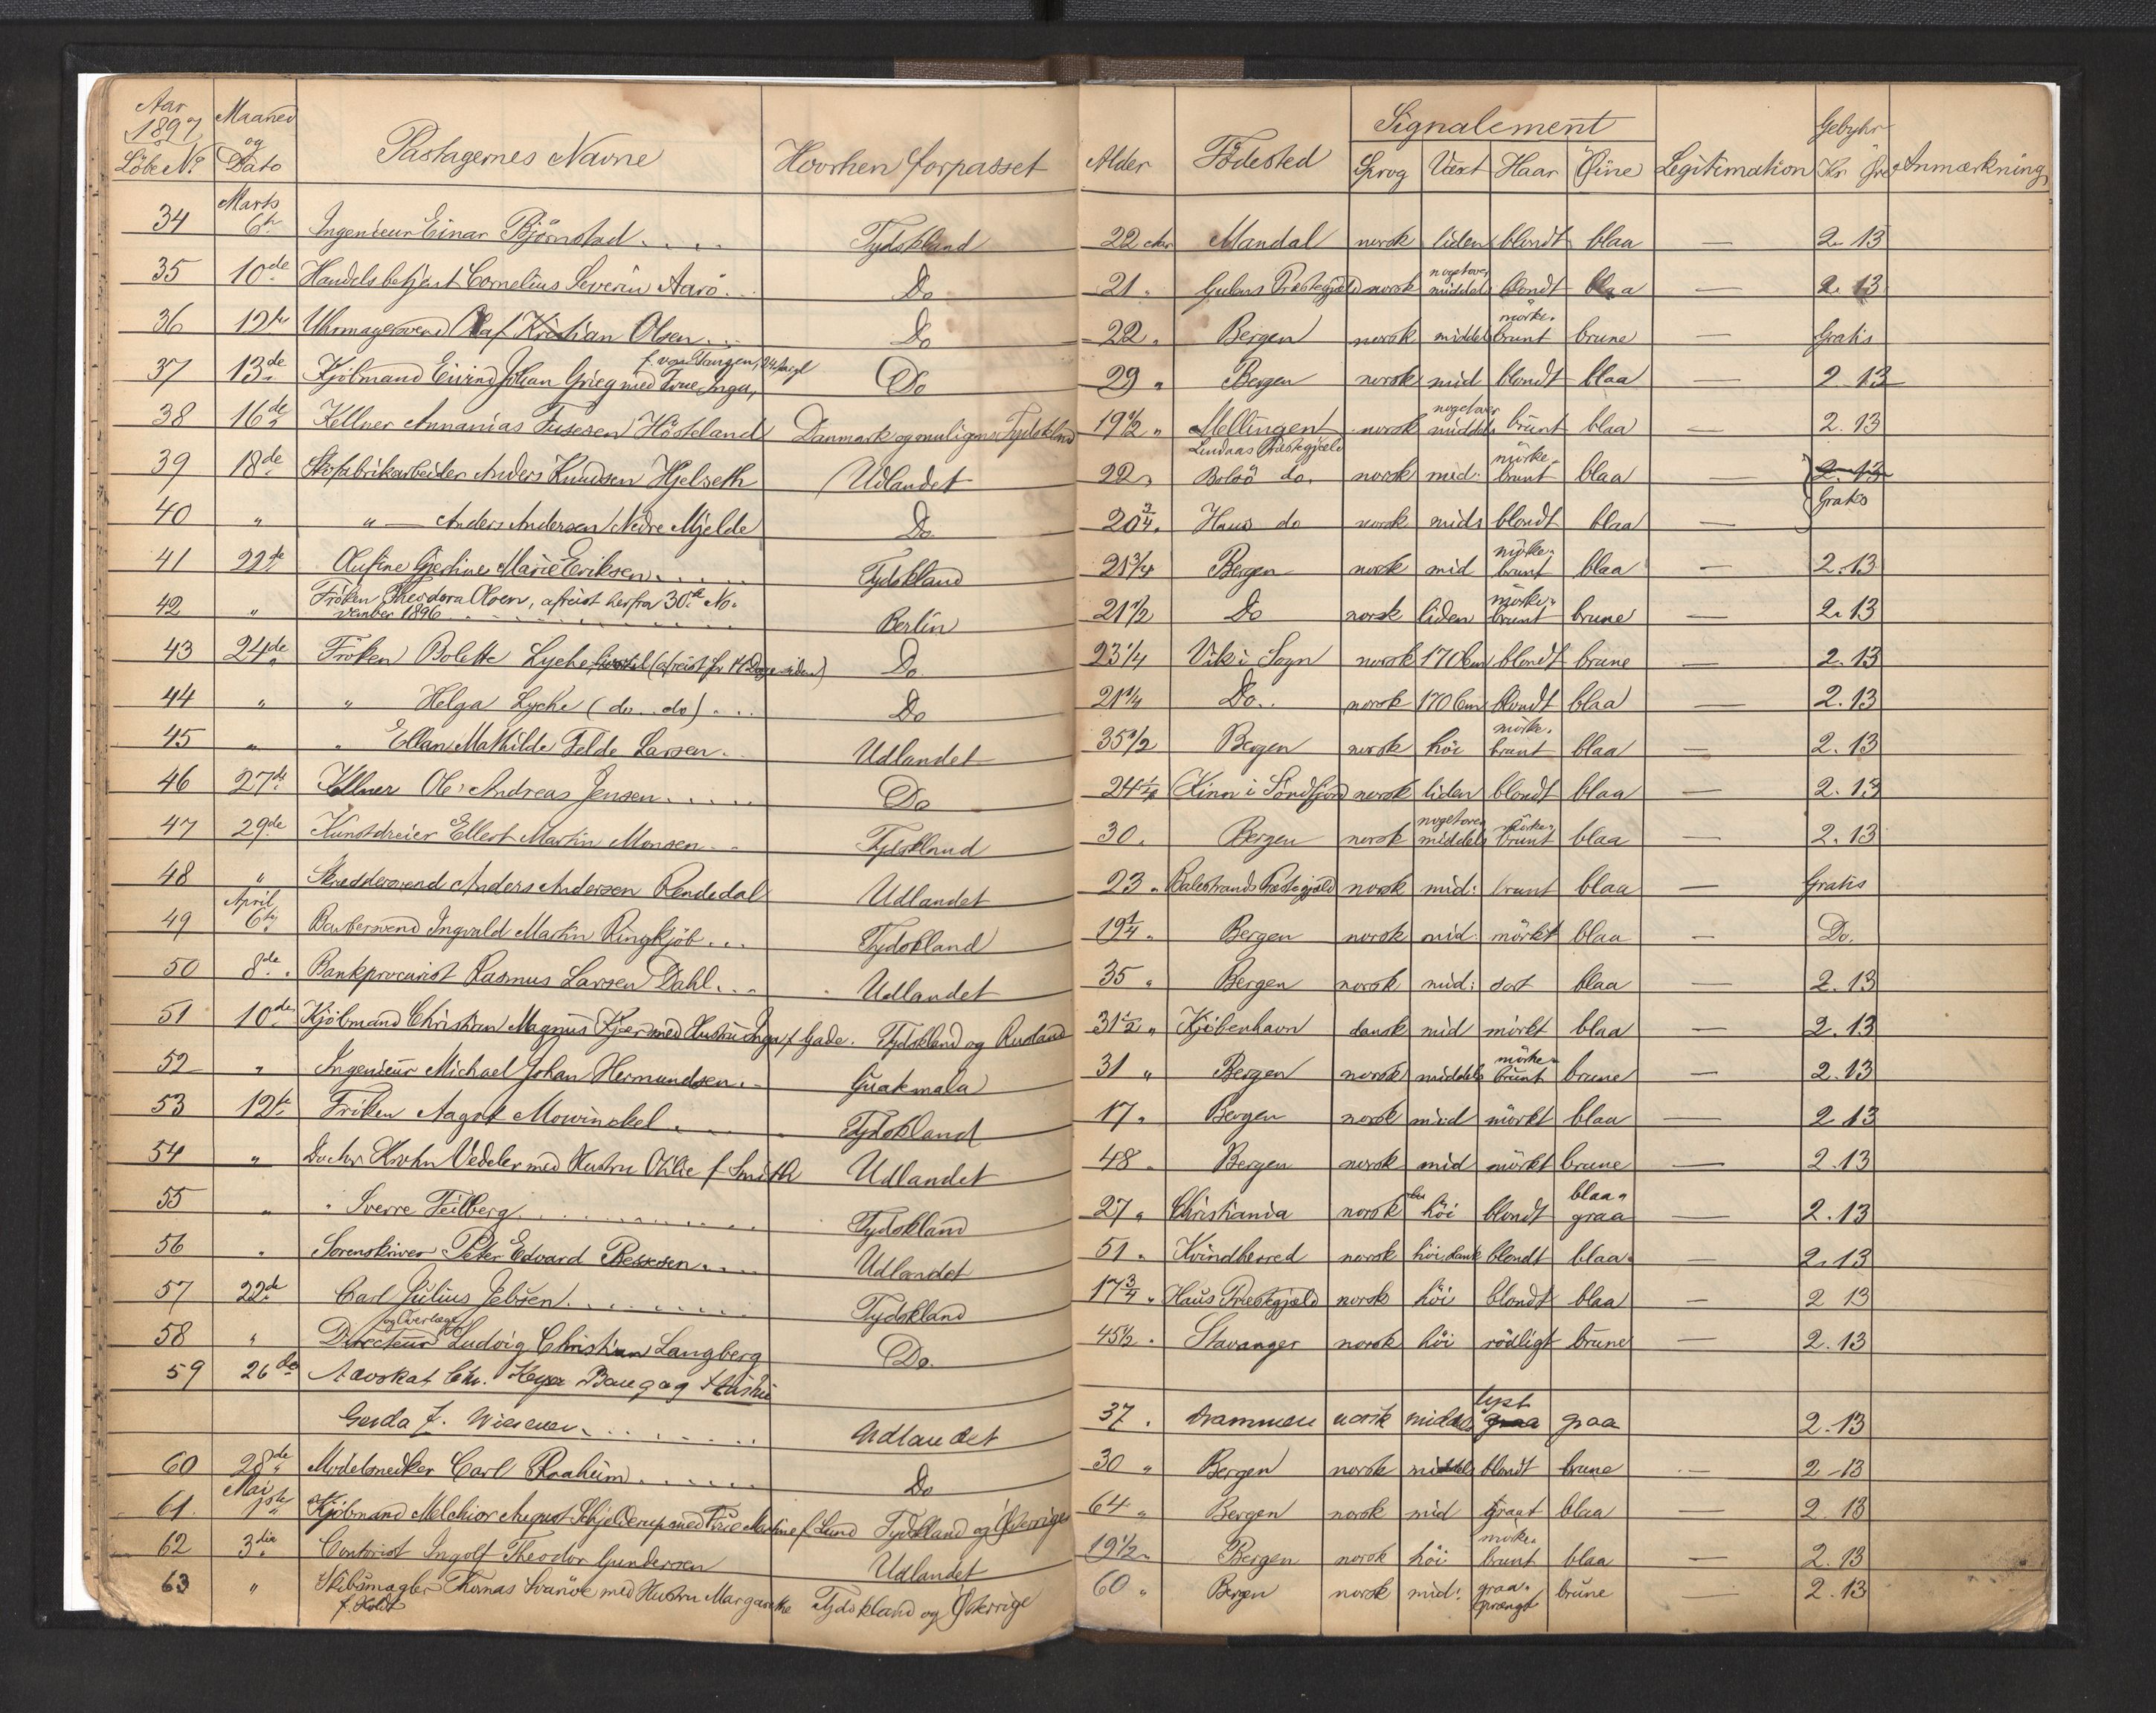 Aar 1897 Maaned og Dato Passagernes Navne Hvorhen forpasset Alder Födested Signalement Legitimation Gebyhr Anmærkning
Löbe No Sprog Væxt Haar Öine Kr Öre
34 Marts 6te Ingenieur Einar Bjørnstad Tydskland 22 Aar Mandal norsk liden blondt blaa — 2. 13
35 10de Handelsbetjent Cornelius Severin Aarö Do 21 " Gulens Præstegjeld norsk noget over middels blondt blaa — 2. 13
36 12te Uhrmagersvend Olaf Kristian Olsen Do 22 " Bergen norsk middels mörke- brunt brune — Gratis
37 13de Kjöbmand Eivind Johan Grieg med Frue Inga, f. von Tangen, 24 Do 29 " Bergen norsk mid blondt blaa — 2. 13
38 16de Kellner Annanias Hösteland Danmark og muligens Tydskland 19 1/2 " Mellingen Lindaas Præstegjæld norsk noget over middels brunt blaa — 2. 13
39 18de Skofabrikarbeider Anders Knudsen Hjelseth Udlandet 22 " Bolsö do. norsk mid: mörke- brunt blaa — 2. 13 Gratis
40 " " — Anders Andersen Nedre Mjelde Do 20 3/4 " Haus do norsk mids blondt blaa —
41 22de Gjertine Marie Eriksen Tydskland 21 3/4 Bergen norsk mid mörke- brunt blaa — 2. 13
42 " Fröken Theodora Olsen, afreist herfra 30te No- vember 1896 Berlin 21 1/2 Do norsk liden mörke- brunt brune — 2. 13
43 24de Fröken Bolette Lyche (afreist for 14 Dage siden) Do 23 1/4 Vik i Sogn norsk 170 Cm blondt brune — 2. 13
44 " " Helga Lyche (do. do) Do 21 1/4 Do norsk 170 Cm blondt blaa — 2. 13
45 " " Ellan Mathilde Felde Larsen Udlandet 35 1/2 Bergen norsk höi mörke- brunt blaa — 2. 13
46 27de Kellner Ole Andreas Jensen Do 24 1/2 Kinn i Söndfjord norsk liden blondt blaa — 2. 13
47 29de Kunstdreier Ellert Martin Monsen Tydskland 30 " Bergen norsk noget over middels mörke- brunt blaa — 2. 13
48 " Skreddersvend Anders Andersen Rendedal Udlandet 23 " Balestrands Præstegjæld norsk mid: brunt blaa — Gratis
49 April 6te Barbersvend Ingvald Martin Ringkjöb Tydskland 19 1/4 " Bergen norsk mid: mörkt blaa — Do.
50 8de Bankprocurist Rasmus Larsen Dahl Udlandet 35 " Bergen norsk mid: sort blaa — 2. 13
51 10de Kjöbmand Christian Magnus Kjær med Hustru Inga f. Gade. Tydskland og Rusland 31 1/2 " Kjöbenhavn dansk mid mörkt blaa — 2. 13
52 " Ingenieur Michael Johan Hermundsen Guatemala 31 " Bergen norsk middels mörke- brunt brune — 2. 13
53 12te Fröken Aagot Mowinckel Tydskland 17 " Bergen norsk mid mörkt blaa — 2. 13
54 " Doctor Krohn Vedeler med Hustru Otilie f Smith Udlandet 48 " Bergen norsk mid mörkt brune — 2. 13
55 " " Sverre Feilberg Tydskland 27 " Christiania norsk höi blondt blaa- graa — 2. 13
56 " Sorenskriver Peter Edvard Udlandet 51 " Kvindherred norsk höi dansk blondt blaa — 2. 13
57 22de Carl Julius Jebsen Tydskland 17 3/4 " Haus Præstegjæld norsk höi blondt blaa — 2 13
58 " Directeur og Overlæge Ludvig Christian Langberg Do. 45 1/2 " Stavanger norsk höi rödligt brune — 2. 13
59 26de Advokat Chr. Keyser Baug og Hustru
Gerda f. Wiesener Udlandet 37 " Drammen norsk middels lyst graa graa 2. 13
60 28de Modelsnedker Carl Raaheim Do 30 " Bergen norsk middels blondt brune — 2 - 13
61 Mai 1ste Kjöbmand Melchior August Schjelderup med Frue Martine f. Lund Tydskland og Österrige 64 " Bergen norsk mid graat blaa — 2. 13
62 3die Contorist Ingolf Theodor Gundersen Udlandet 19 1/2 " Bergen norsk höi mörke- brunt blaa — 2. 13
63 " Skibsmægler Thomas Svanöe med Hustru Margarethe f. Holdt Tydskland og Österrige 60 " Bergen norsk mid: graa- sprængt brune — 2. 13